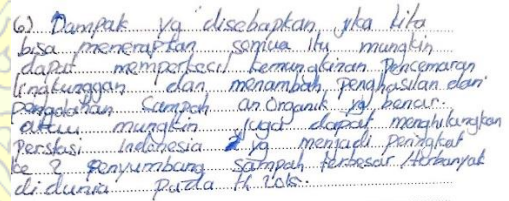 6) Dampak yg disebapkan jika kita
bisa menerapkan semua itu mungkin
dapat memperkecil kemungkinan Pencemaran
lingkunggan dan menambah penghasilan dari
pengolahan Sampah an organik yg benar.
atau mungkin juga dapat menghilangkan
Perstasi indonesia yg menjadi peringkat
ke 2 penyumbang sampah terbesar/terbanyak
di dunia pada th 2015.